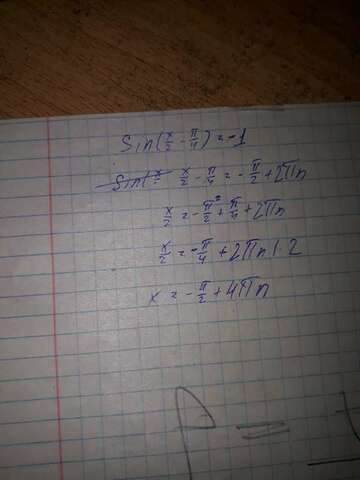 sin(x/2 - π/4) = -1
x/2 - π/4 = -π/2 + 2πn
x/2 = -π/2 + π/4 + 2πn
x/2 = -π/4 + 2πn | · 2
x = -π/2 + 4πn